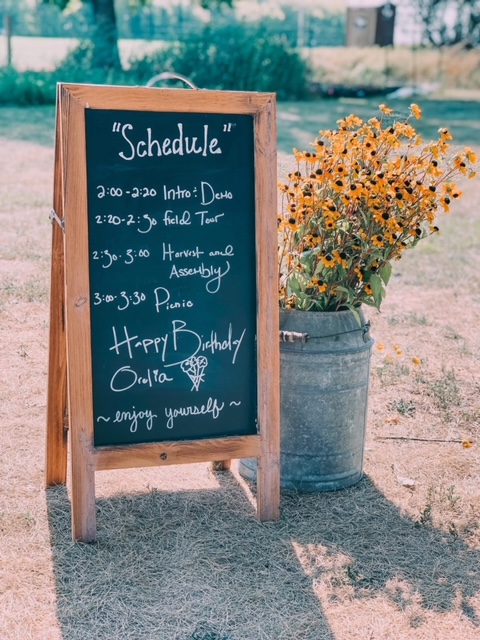 "Schedule"
2:00-2:20 Intro: Demo
2:20-2:30 field Tour
2:30-3:00 Harvest and
Assembly
3:00-3:30 Picnic
Happy Birthday
Oralia
~ enjoy yourself ~